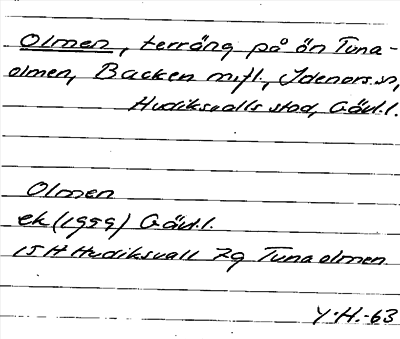 Olmen, terräng på ön Tuna-
olmen, Backen m.fl., Idenors sn,
Hudiksvalls stad, Gävl.l.
Olmen
ek (1959) Gävl.l.
15H Hudiksvall 7g Tunaolmen
Y.H.-63